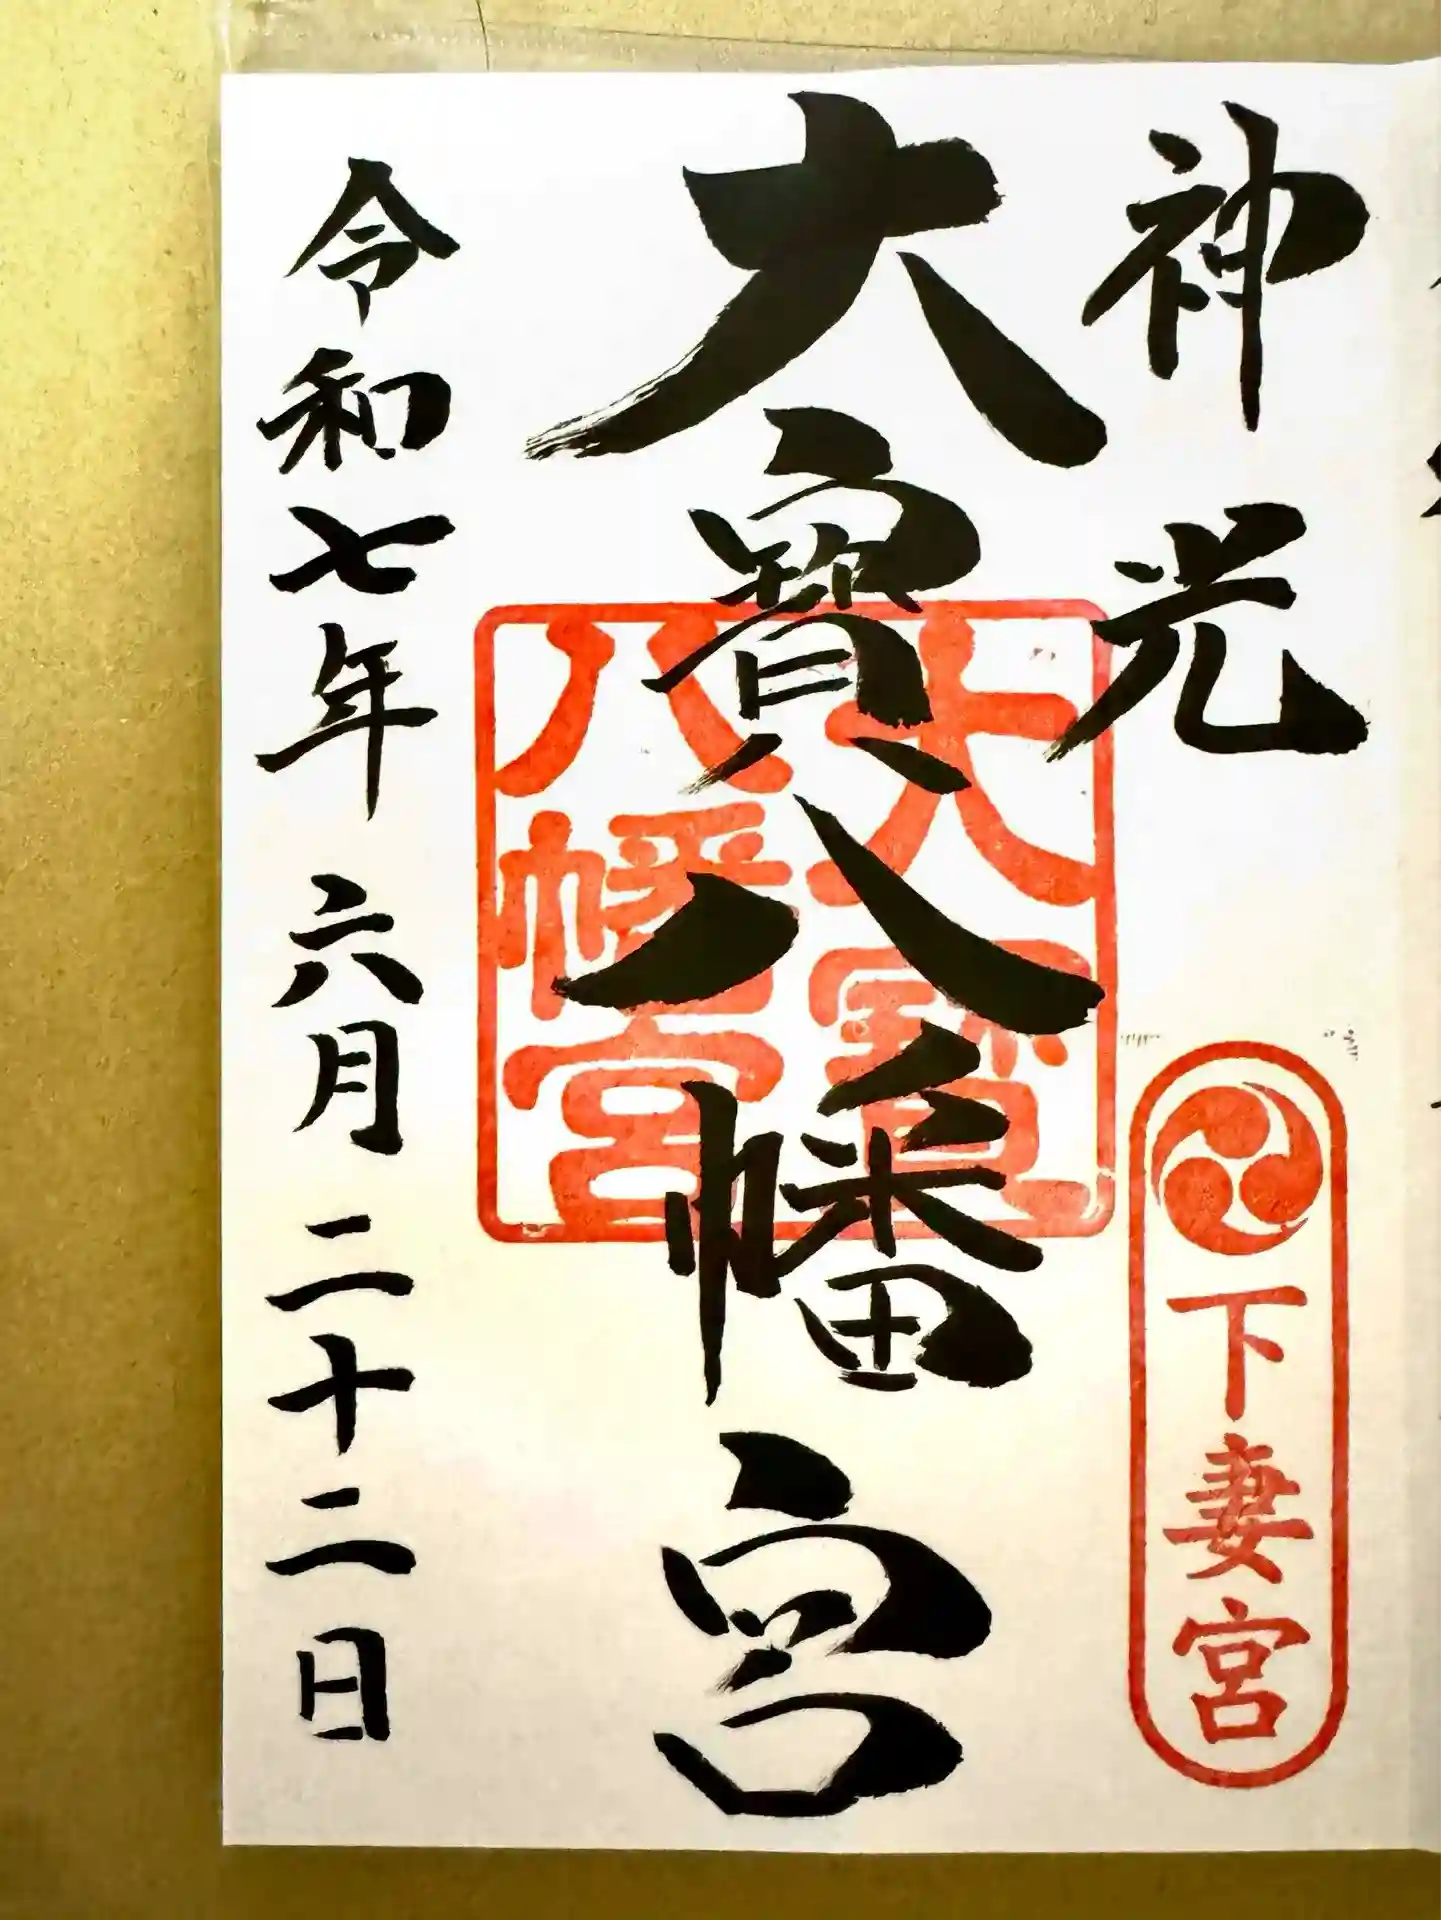 神光
下妻宮
大寳八幡宮
大寳
八幡宮
令和七年六月二十二日